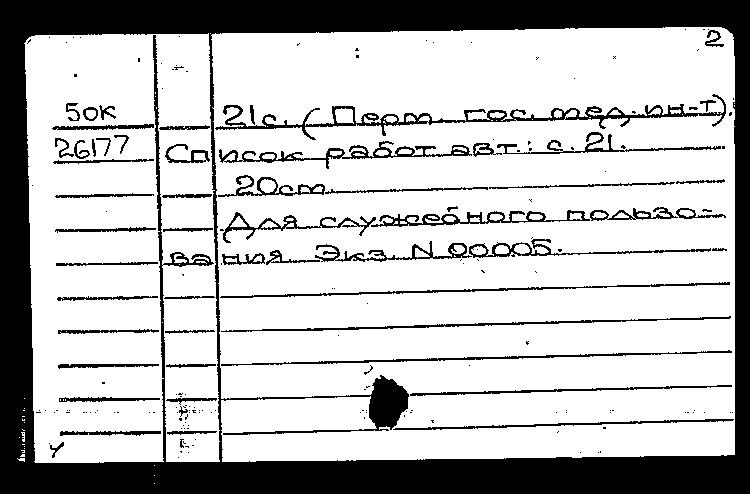 2
50К 21с. (Перм. гос. мед. ин-т).
26177 Список работ авт.: с. 21.
20cm.
Для служебного пользо-
вания. Экз. N 00005.